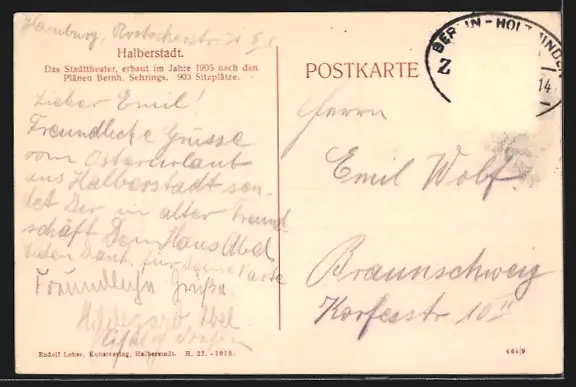 Hamburg, Rostockerstr.
Halberstadt.
Das Stadttheater, erbaut im Jahre 1905 nach den
Plänen Bernh. Sehrings. 900 Sitzplätze.
Lieber Emil!
Freundliche Grüsse
vom Osterurlaub
aus Halberstadt sen-
det Dir in alter Freund
schaft Dein Hans Abel
Vielen Dank für Deine Karte
Freundliche Grüße
Hildegard Abel
Rudolf Loher, Kunstverlag, Halberstadt. H. 27. -1913.
POSTKARTE
BERLIN - HOLZMINDEN
Z
14
Herrn
Emil Wolf.
Braunschweig
10 II
464/9